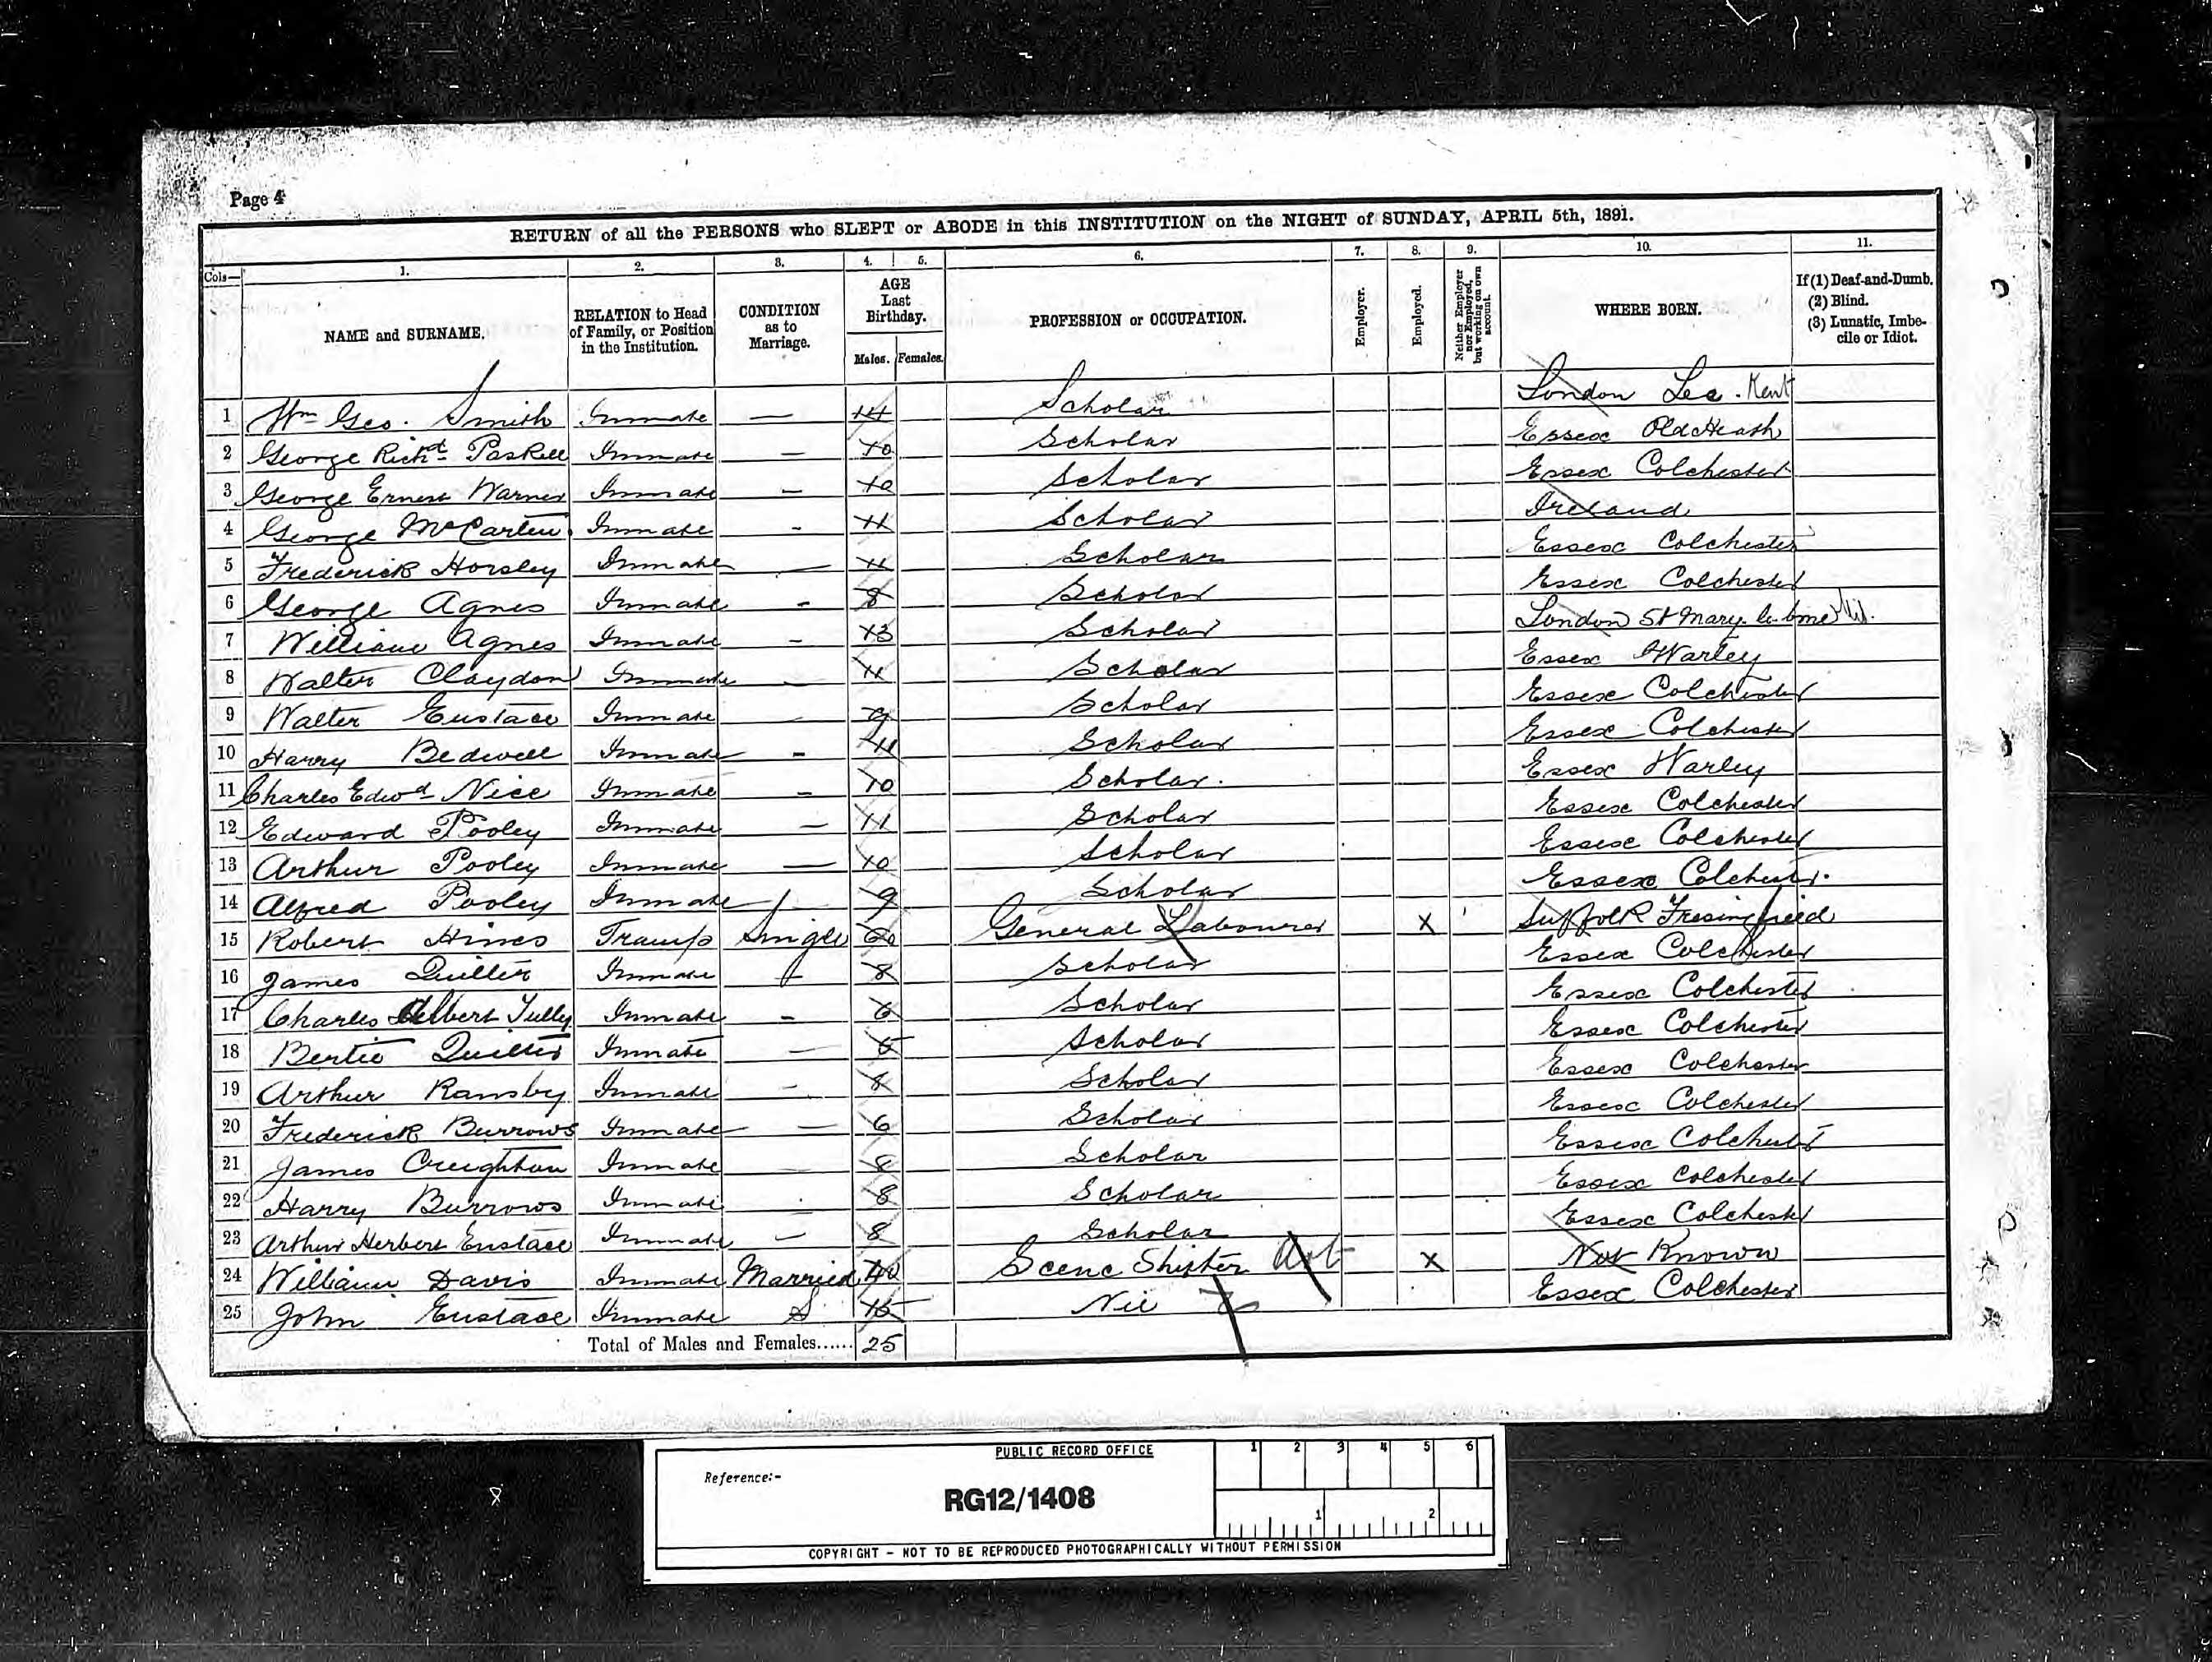 Page 4
RETURN of all the PERSONS who SLEPT or ABODE in this INSTITUTION on the NIGHT of SUNDAY, APRIL 5th, 1891.
Cols— 1. 2. 3. 4. 5. 6. 7. 8. 9. 10. 11.
NAME and SURNAME. RELATION to Head of Family, or Position in the Institution. CONDITION as to Marriage. AGE Last Birthday. Males. Females. PROFESSION or OCCUPATION. Employer. Employed. Neither Employer nor Employed, but working on own account. WHERE BORN. If (1) Deaf-and-Dumb. (2) Blind. (3) Lunatic, Imbecile or Idiot.
1 Wm Geo. Smith Inmate — 14 Scholar London Lee. Kent
2 George Richd Paskell Inmate — 10 Scholar Essex Old Heath
3 George Ernest Warner Inmate — 10 Scholar Essex Colchester
4 George McCarten Inmate - 11 Scholar Ireland
5 Frederick Horsley Inmate — 11 Scholar Essex Colchester
6 George Agnes Inmate - 8 Scholar Essex Colchester
7 William Agnes Inmate - 13 Scholar London St Mary le bone
8 Walter Claydon Inmate - 11 Scholar Essex Warley
9 Walter Eustace Inmate - 9 Scholar Essex Colchester
10 Harry Bedwell Inmate - 11 Scholar Essex Colchester
11 Charles Edwd Nice Inmate - 10 Scholar. Essex Warley
12 Edward Pooley Inmate — 11 Scholar Essex Colchester
13 Arthur Pooley Inmate — 10 Scholar Essex Colchester
14 Alfred Pooley Inmate 9 Scholar Essex Colchester.
15 Robert Hines Tramp Single 60 General Labourer X Suffolk Fresingfield
16 James Quilter Inmate 8 Scholar Essex Colchester
17 Charles Albert Tully Inmate - 6 Scholar Essex Colchester
18 Bertie Quilter Inmate — 5 Scholar Essex Colchester
19 Arthur Ransby Inmate - 8 Scholar Essex Colchester
20 Frederick Burrows Inmate — 6 Scholar Essex Colchester
21 James Creighton Inmate 8 Scholar Essex Colchester
22 Harry Burrows Inmate 8 Scholar Essex Colchester
23 Arthur Herbert Eustace Inmate — 8 Scholar Essex Colchester
24 William Davis Inmate Married 40 Scene Shifter Art X Not Known
25 John Eustace Inmate S 15 Nil Essex Colchester
Total of Males and Females...... 25
PUBLIC RECORD OFFICE
1 2 3 4 5 6
Reference:-
RG12/1408
1 2
COPYRIGHT - NOT TO BE REPRODUCED PHOTOGRAPHICALLY WITHOUT PERMISSION